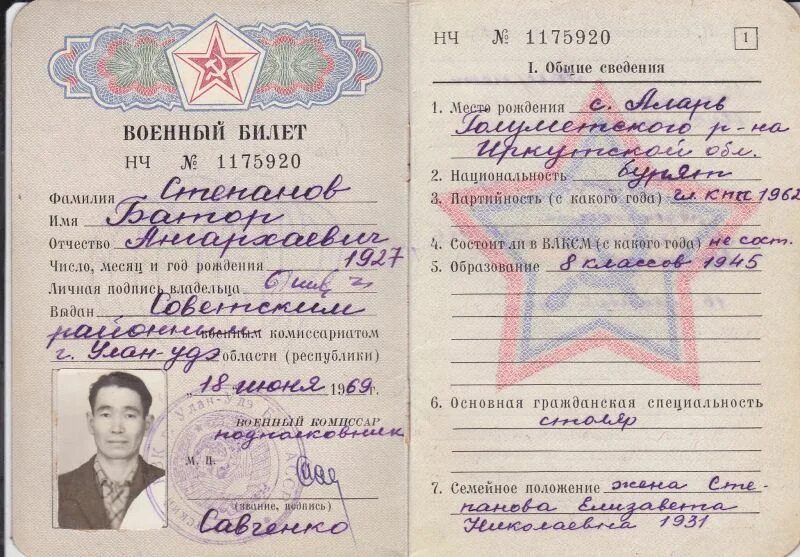 ВОЕННЫЙ БИЛЕТ
НЧ № 1175920
Фамилия Степанов
Имя Батор
Отчество Ангархаевич
Число, месяц и год рождения 1927
Личная подпись владельца
Выдан Советским
районным военным комиссариатом
г. Улан-удэ области (республики)
„18 июня 1969г.
ВОЕННЫЙ КОМИССАР
подполковник
М. П.
(звание, подпись)
Савченко
НЧ № 1175920
1
I. Общие сведения
1. Место рождения с. Аларь
Голуметского р-на
Иркутской обл.
2. Национальность бурят
3. Партийность (с какого года) чл. КПСС 1962
4. Состоит ли в ВЛКСМ (с какого года) не сост.
5. Образование 8 классов 1945
6. Основная гражданская специальность
столяр
7. Семейное положение жена Сте-
панова Елизавета
Николаевна 1931